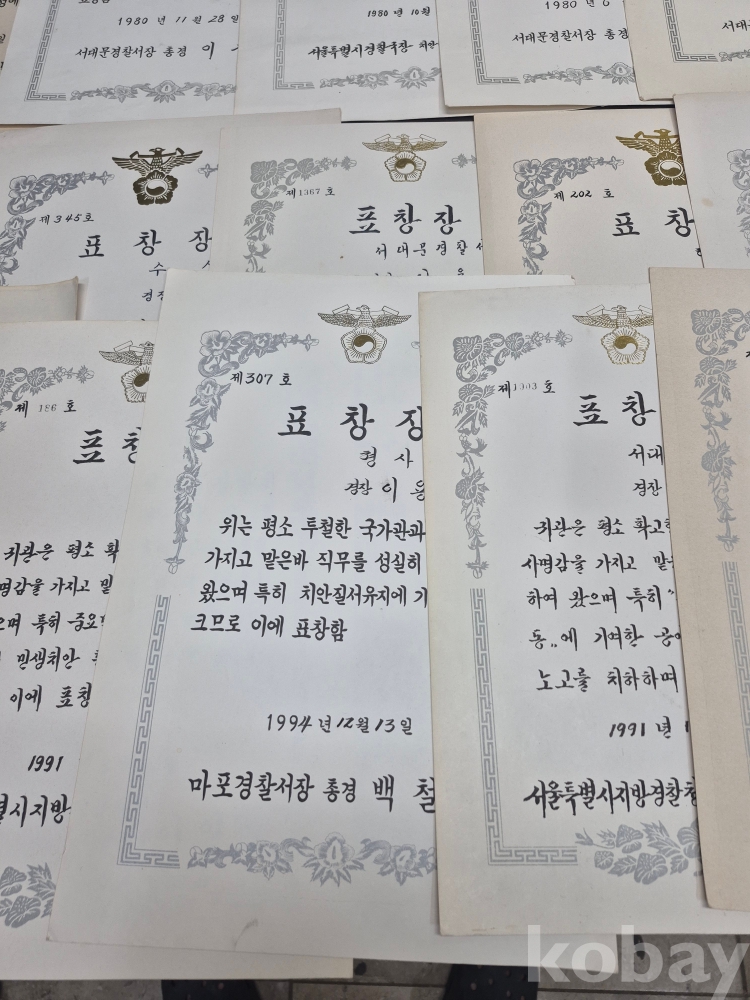 1980 년 11 월 28 일
서대문경찰서장 총경 이
1980 년 10
서울특별시경찰국장
1980 년
서대문경찰서장 총경
서대
제 345 호
표 창 장
수
경장
제1367 호
표 창 장
서대문경찰서
제 202 호
표 창
제 186 호
표 창
귀관은 평소 확
사명감을 가지고 맡
으며 특히 중요
민생치안
이에 표창
1991
별시지방
제307 호
표 창 장
형 사
경장 이 용
위는 평소 투철한 국가관과
가지고 맡은바 직무를 성실히
왔으며 특히 치안질서유지에 기
크므로 이에 표창함
1994 년 12 월 13 일
마포경찰서장 총경 백 철
제1303 호
표 창
서대
경장
귀관은 평소 확고한
사명감을 가지고 맡
하여 왔으며 특히 "
동„에 기여한 공이
노고를 치하하며
1991 년 1
서울특별시지방경찰청
kobay